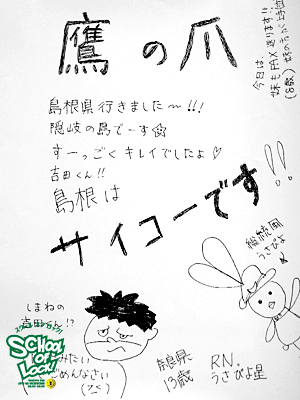 鷹の爪
今日は、
妹もFAX送ります!!
(8歳)
島根県行きました〜!!!
隠岐の島でーす☆
すーっごくキレイでしたよ♡
吉田くん!!
島根は
サイコーです!!
総統風
うさぴょ
しまねの
吉田くん!?
みたい
ごめんなさい
奈良県
13歳
RN.
うさぴょ星
SCHOOL
OF
LOCK!